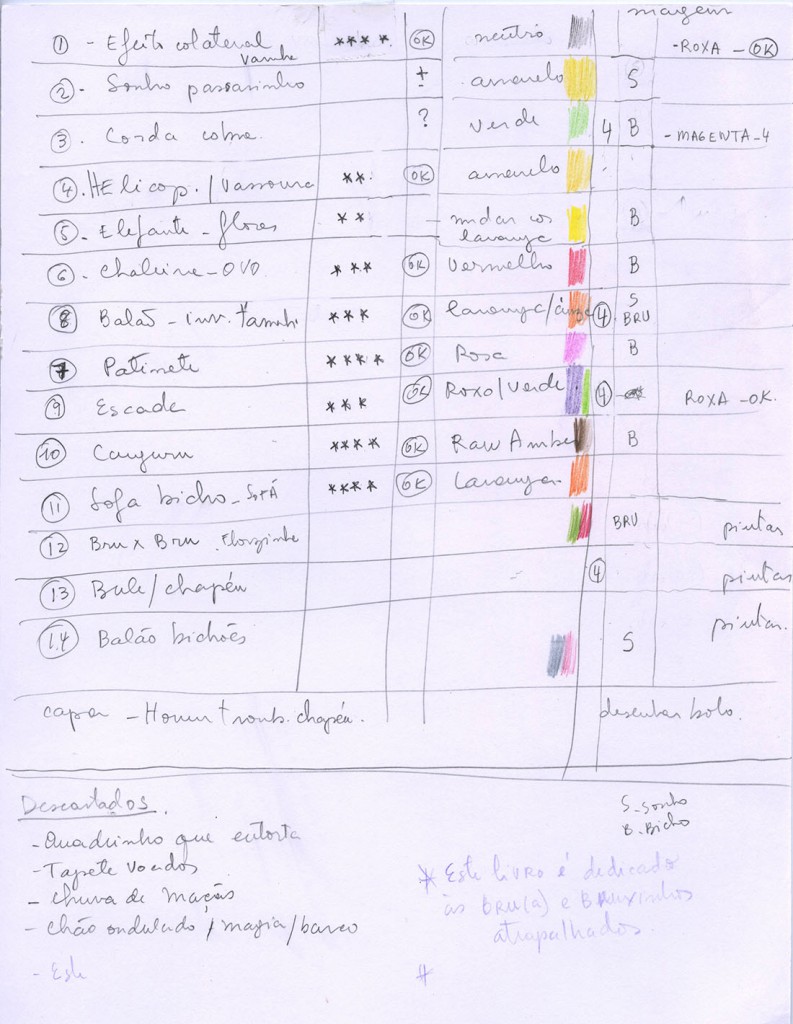 magem
① - Efeito colateral **** OK neutro - ROXA - OK
Varinha
② - Sonho passarinho ± amarelo S
③ - Corda cobra. ? verde 4 B - MAGENTA - 4
④. HElicop. / Vassoura ** OK amarelo
⑤ - Elefante - flores ** - mudar cor laranja B
⑥ - Chaleira - OVO *** OK Vermelho B
⑧ Balão - inv. tamanh *** OK laranja/cinza ④ S BRU
⑦ Patinete **** OK Rosa B
⑨ Escada *** OK Roxo/verde ④ ROXA - OK.
⑩ Canguru **** OK Raw Amber B
⑪ Sofa bicho - SOFÁ **** OK Laranja
⑫ Bru x Bru. Florzinha BRU pintar
⑬ Bule / chapéu - ④ pintar
⑭ Balão bichões S pintar.
capa - Homem tromb. chapéu. desenhar bolo.
Descartados.
S - sonho
B. Bicho
- Quadrinho que entorta
- Tapete voador
- Chuva de maçãs
- Chão ondulado / magia / barco
- Este
* Este livro é dedicado
às BRU(A) e BRuxinhos
atrapalhados.
#